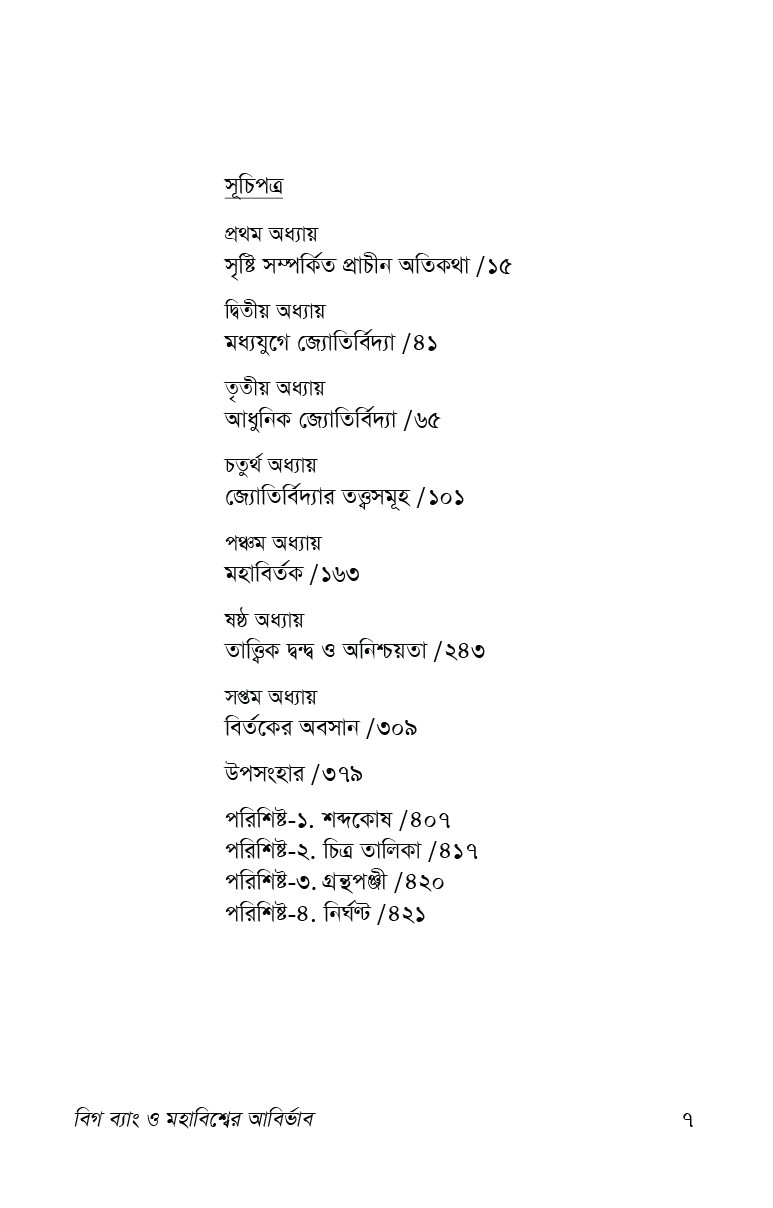 সূচিপত্র
প্রথম অধ্যায়
সৃষ্টি সম্পর্কিত প্রাচীন অতিকথা /১৫
দ্বিতীয় অধ্যায়
মধ্যযুগে জ্যোতির্বিদ্যা /৪১
তৃতীয় অধ্যায়
আধুনিক জ্যোতির্বিদ্যা /৬৫
চতুর্থ অধ্যায়
জ্যোতির্বিদ্যার তত্ত্বসমূহ /১০১
পঞ্চম অধ্যায়
মহাবির্তক /১৬৩
ষষ্ঠ অধ্যায়
তাত্ত্বিক দ্বন্দ্ব ও অনিশ্চয়তা /২৪৩
সপ্তম অধ্যায়
বির্তকের অবসান /৩০৯
উপসংহার /৩৭৯
পরিশিষ্ট-১. শব্দকোষ /৪০৭
পরিশিষ্ট-২. চিত্র তালিকা /৪১৭
পরিশিষ্ট-৩. গ্রন্থপঞ্জী /৪২০
পরিশিষ্ট-৪. নির্ঘণ্ট /৪২১
বিগ ব্যাং ও মহাবিশ্বের আবির্ভাব ৭